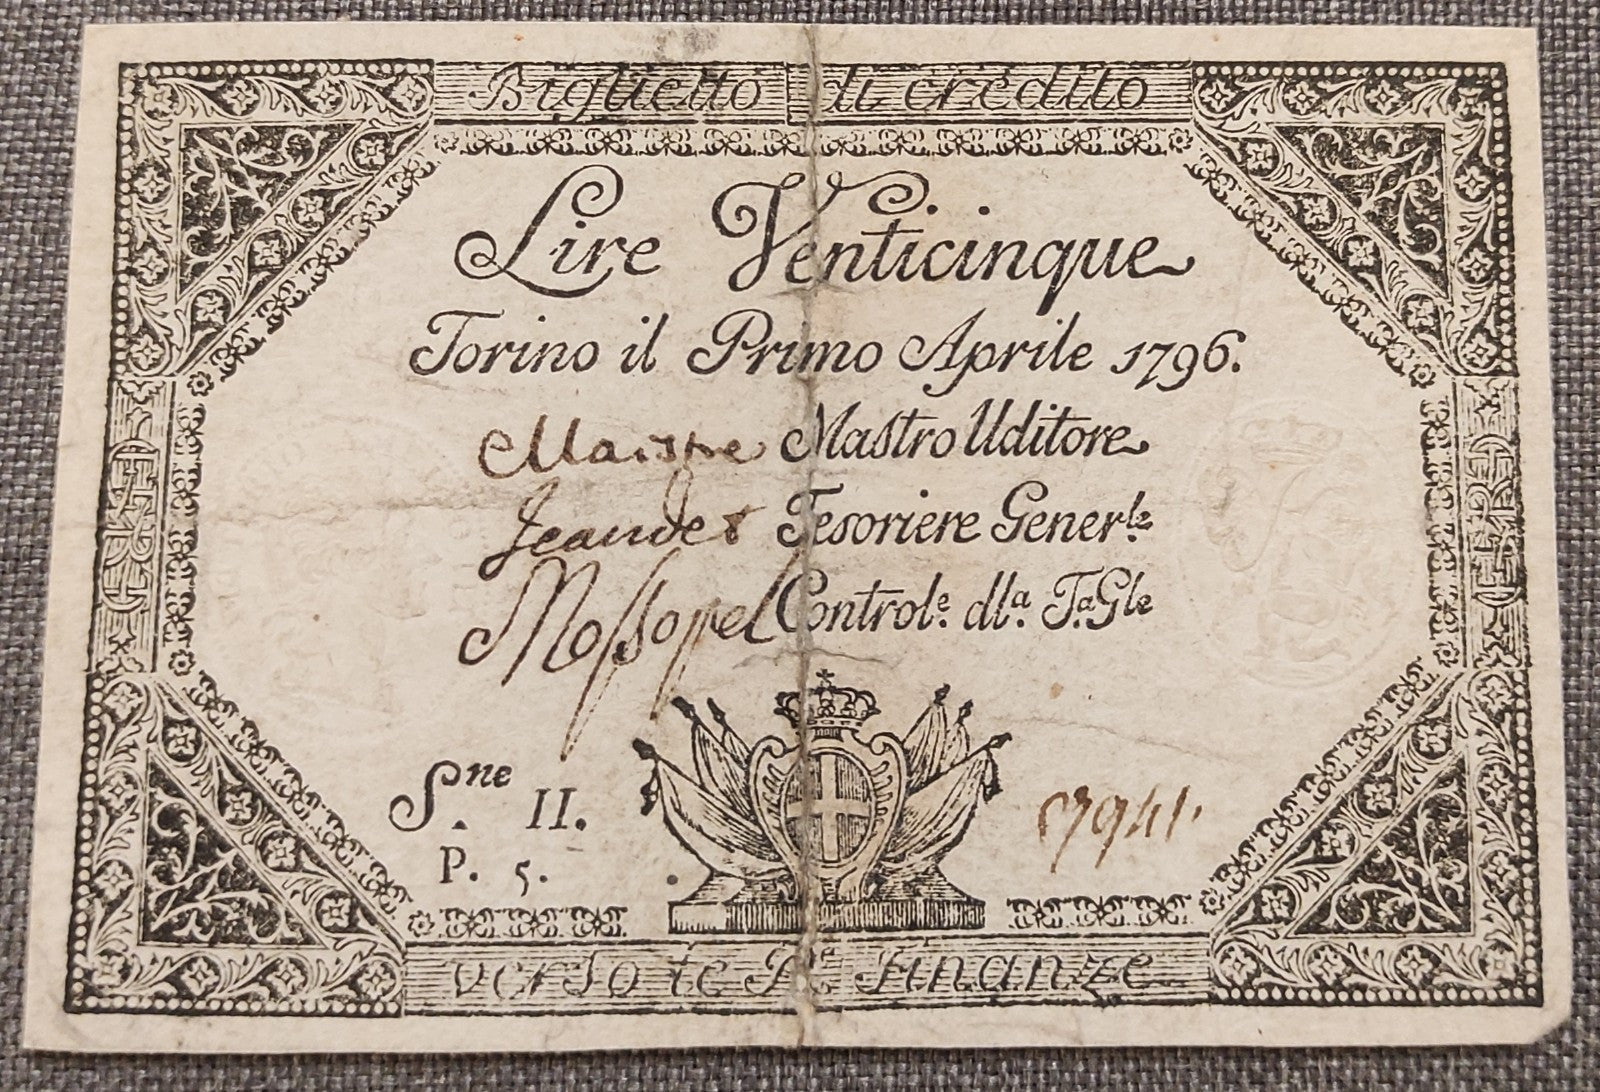 Biglietto di credito
Lire Venticinque
Torino il Primo Aprile 1796.
Maistre Mastro Uditore
Jeaudet Tesoriere Gener.le
Controle. dla. Ta. Gle
Sne. II.
P. 5.
7941.
verso le Re. Finanze